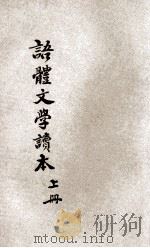 語體文學讀本 上冊
mtoou.info